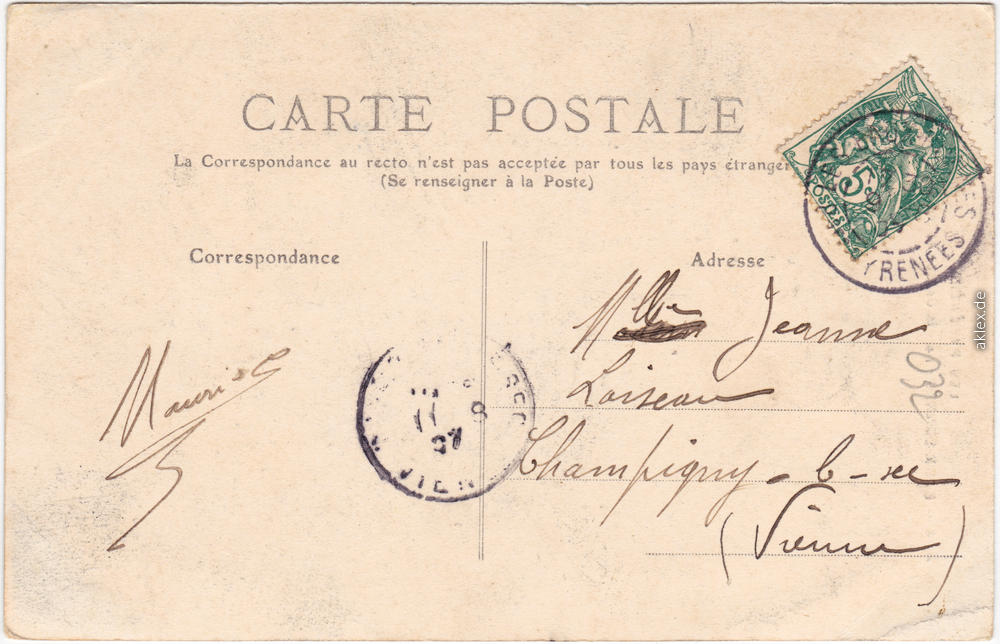 CARTE POSTALE
La Correspondance au recto n'est pas acceptée par tous les pays étranger
(Se renseigner à la Poste)
Correspondance
Adresse
Mlle Jeanne
Loiseau
Champigny-le-sec
(Vienne)
Maurice
5
YRENEES
11 8
VIEN
032
aklex.de